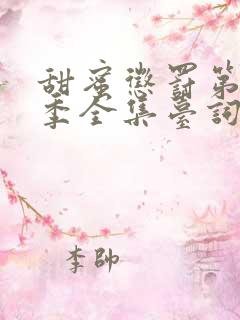 甜蜜懲罰第
季全集臺詞
李帥